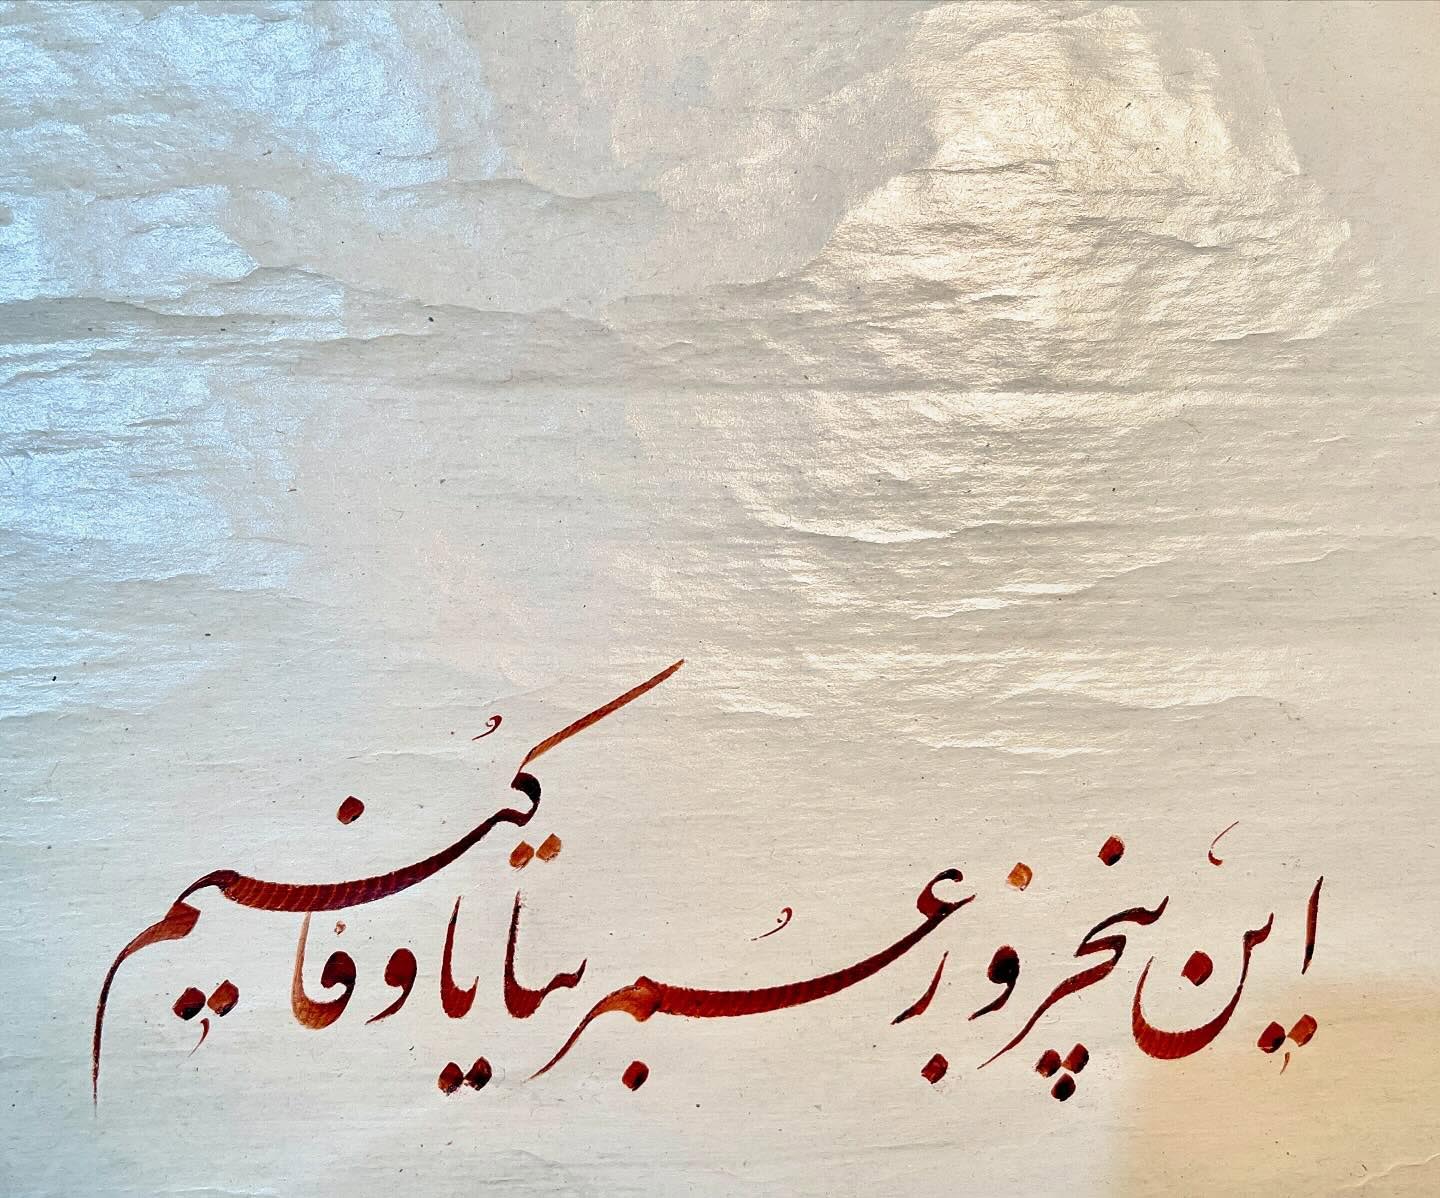 این پنج روز عُمر بیا تا وفا کُنیم